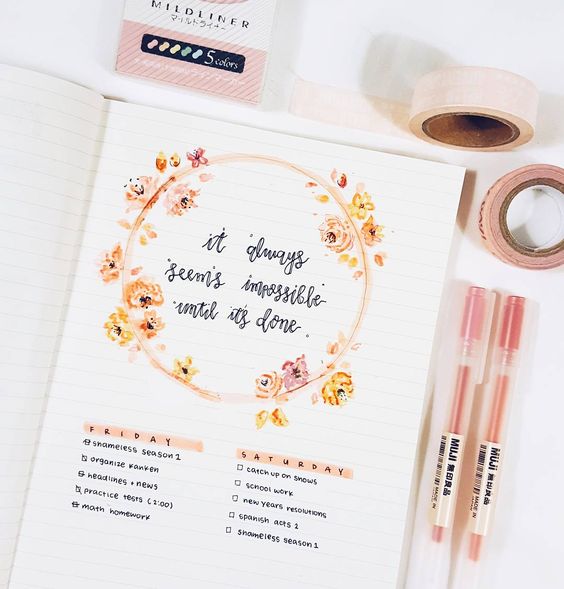 MILDLINER
マイルドライナー
5 colors
it always
seems impossible
until it's done.
FRIDAY
shameless season 2
organize kanken
headlines + news
practice tests (2:00)
math homework
SATURDAY
catch up on shows
school work
new years resolutions
spanish acts 2
shameless season 1
MUJI 無印良品
MADE IN
MUJI 無印良品
MADE IN